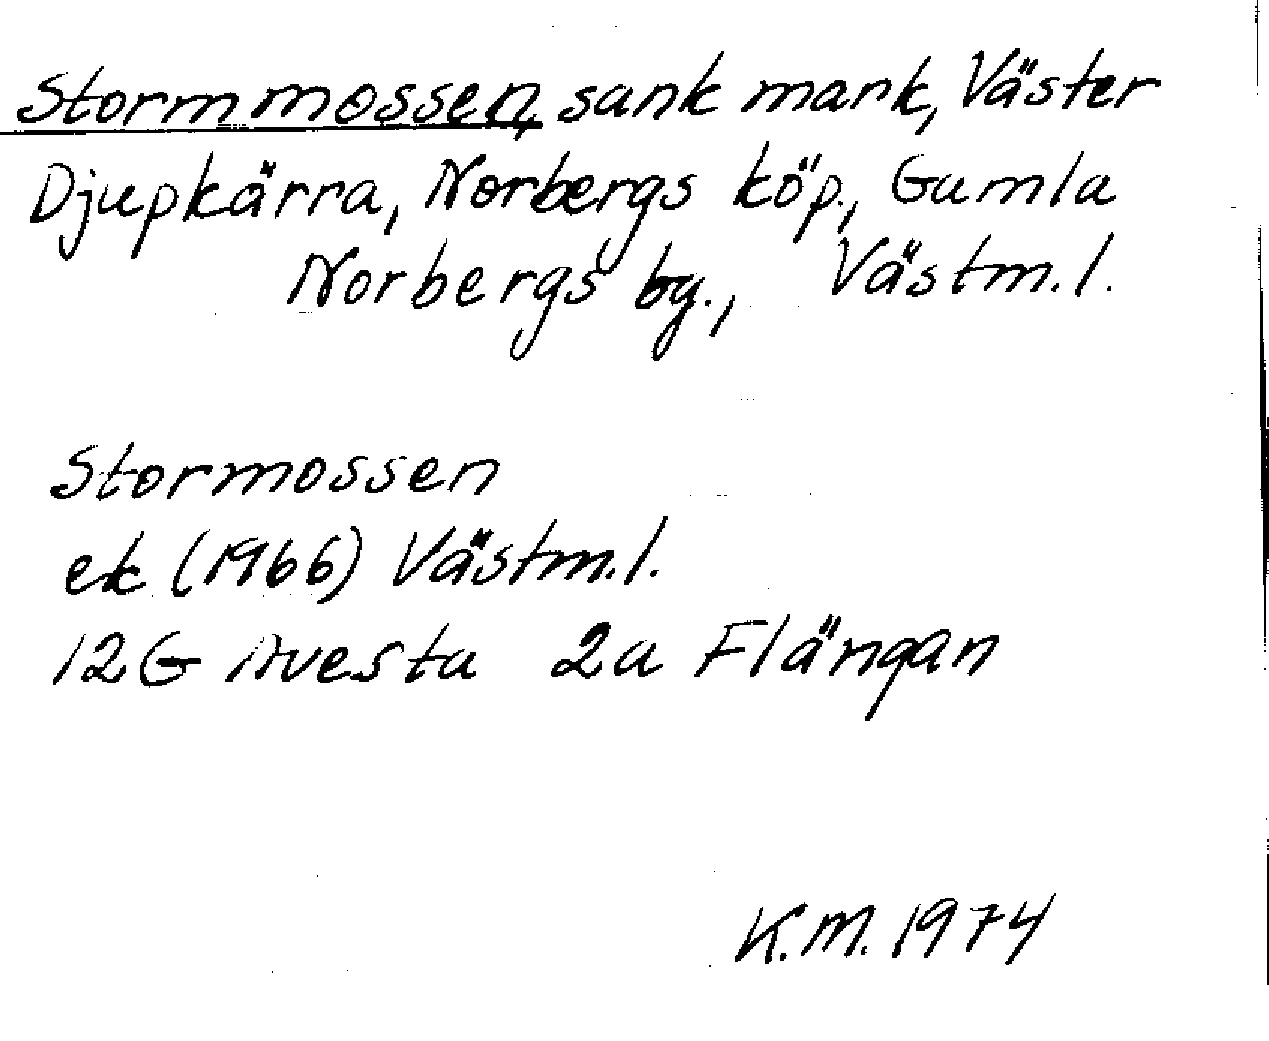 Stormmossen, sank mark, Väster
Djupkärra, Norbergs köp., Gamla
Norbergs bg., Västm.l.
Stormossen
ek (1966) Västm.l.
12G Avesta 2a Flängan
K.M. 1974